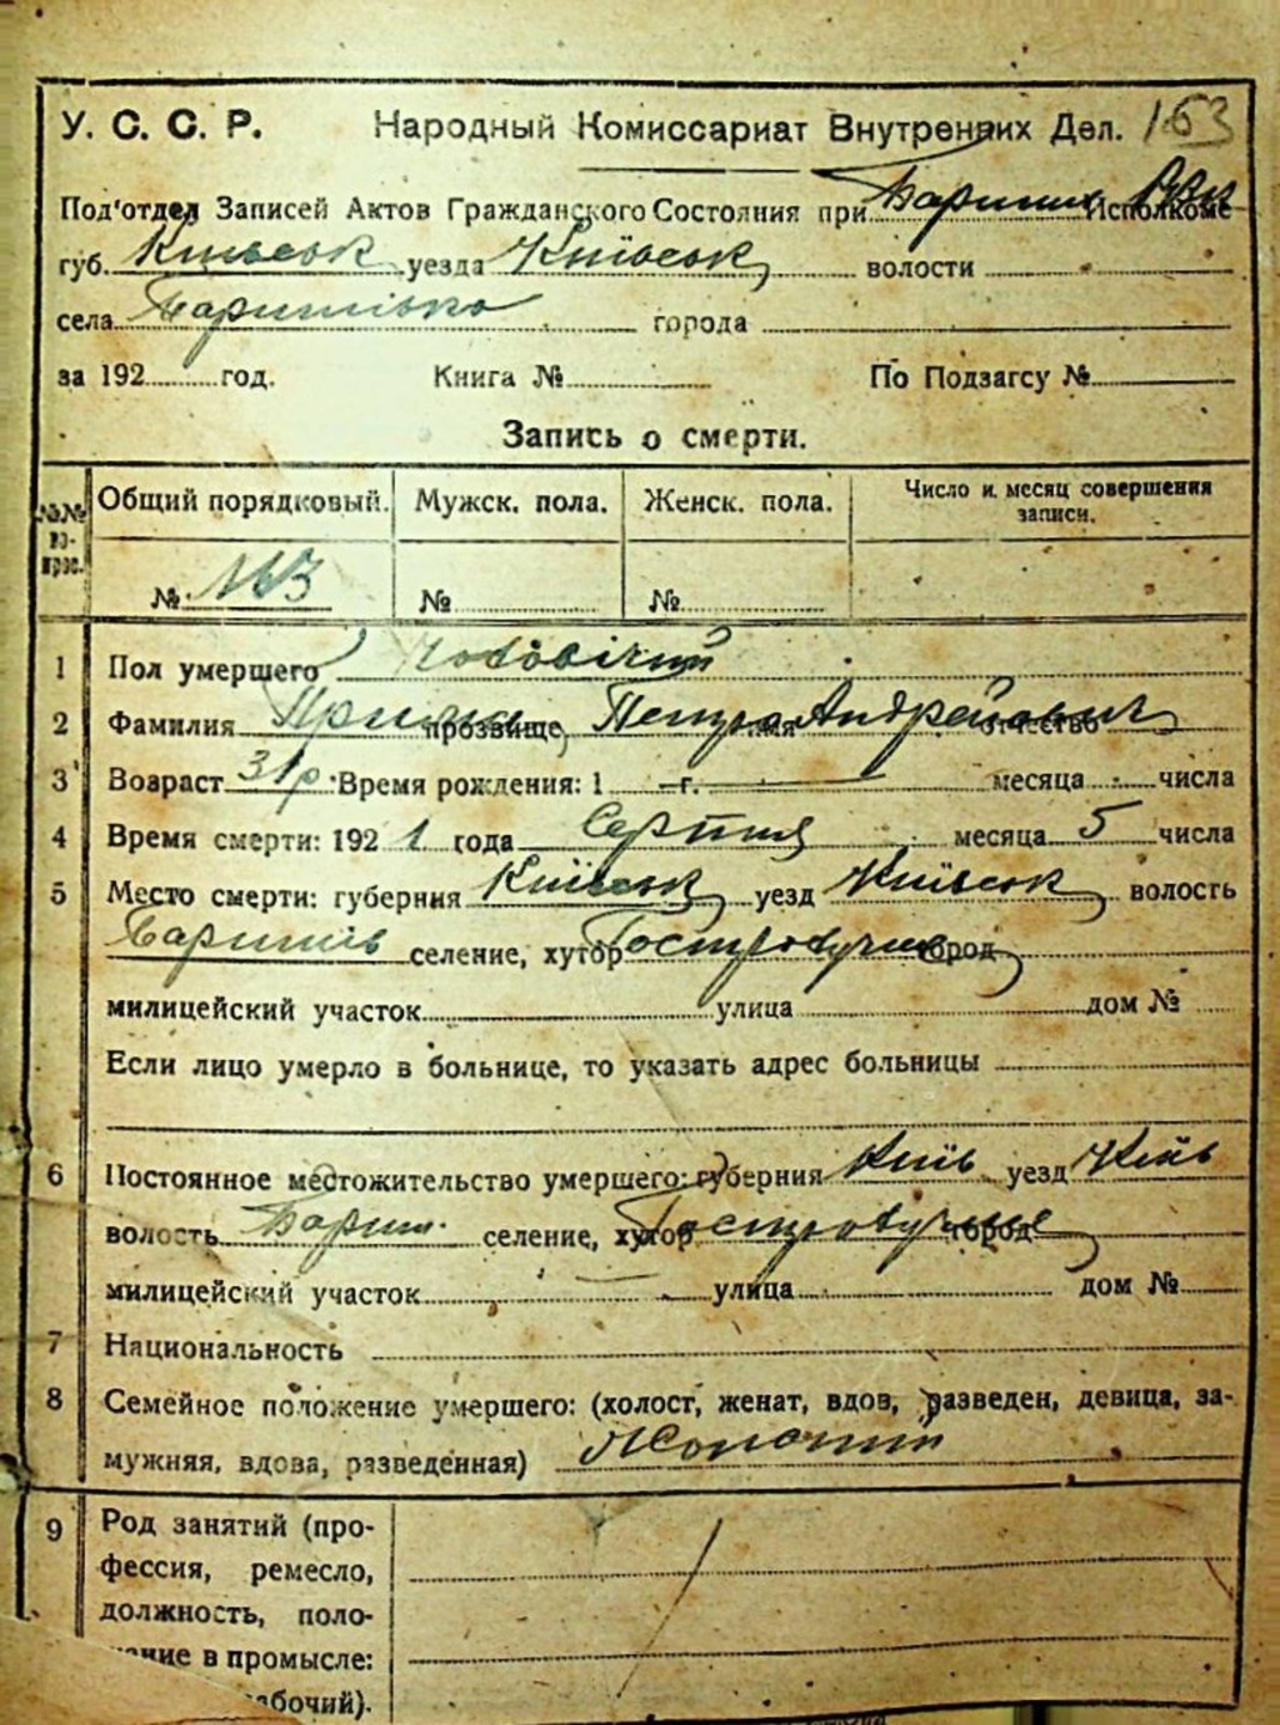 У. С. С. Р. Народный Комиссариат Внутренних Дел. 163
Под'отдел Записей Актов Гражданского Состояния при Бориш Исполкоме
губ. Київськ уезда Київськ волости
села Баришівка города
за 192 год. Книга № По Подзагсу №
Запись о смерти.
№№ во-прос. Общий порядковый. Мужск. пола. Женск. пола. Число и месяц совершения записи.
№ 163 № №
1 Пол умершего Чоловічий
2 Фамилия прозвище, Петро имя Андрейович отчество
3 Возраст 31 р. Время рождения: 1 г. месяца числа
4 Время смерти: 192 1 года Серпня месяца 5 числа
5 Место смерти: губерния Київськ уезд Київськ волость
Баришів селение, хутор город
милицейский участок улица дом №
Если лицо умерло в больнице, то указать адрес больницы
6 Постоянное местожительство умершего: губерния Київ уезд Київ
волость Бориш. селение, хутор город
милицейский участок улица дом №
7 Национальность
8 Семейное положение умершего: (холост, женат, вдов, разведен, девица, за-
мужняя, вдова, разведенная) Жонатий
9 Род занятий (про-
фессия, ремесло,
должность, поло-
жение в промысле:
рабочий).